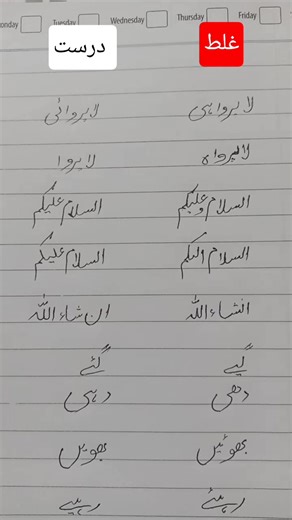 onday Tuesday Wednesday Thursday Friday
غلط درست
لاپرواہی لاپروائی
لاپرواہ لاپروا
السلام و علیکم السلام علیکم
السلام الیکم السلام علیکم
انشاءاللہ ان شاءاللہ
گیے گئے
دھی دہی
بھوئیں بھویں
رہئے رہیے